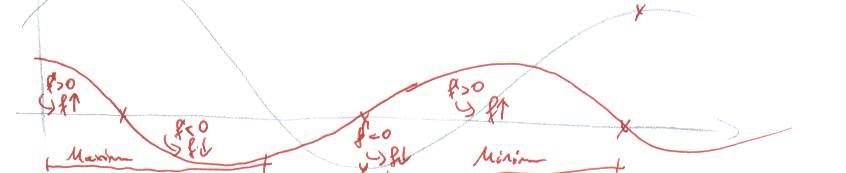 f'>0
↳ f↑
f'<0
↳ f↓
f'<0
↳ f↓
f'>0
↳ f↑
Maximum
Minimum